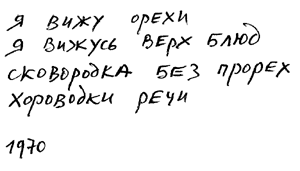 я вижу орехи
я вижусь верх блюд
сковородка без прорех
хороводки речи
1970